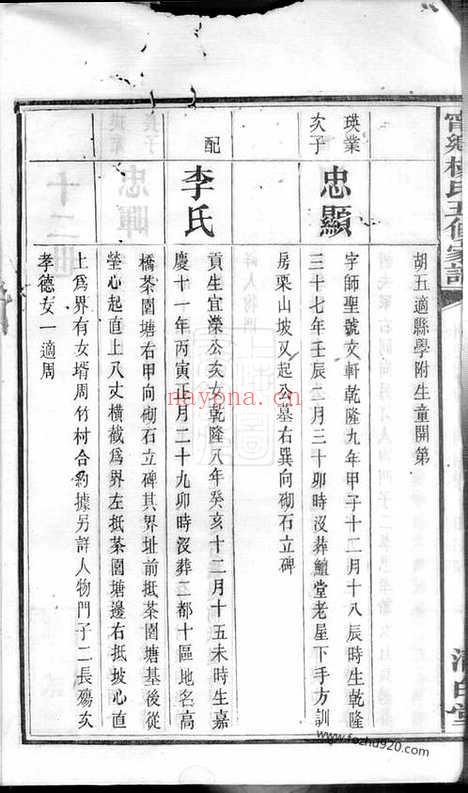 寧鄉楊氏五修家譜
胡五適縣學附生童開第
瑛業
次子
忠顯
字師聖號文軒乾隆九年甲子十二月十八辰時生乾隆
三十七年壬辰二月三十卯時沒葬鱣堂老屋下手方訓
房栗山坡又起公墓右巽向砌石立碑
配
李氏
貢生宜濚公次女乾隆八年癸亥十二月十五未時生嘉
慶十一年丙寅正月二十九卯時沒葬二都十區地名高
橋茶園塘右甲向砌石立碑其界址前抵茶園塘基後從
塋心起直上八丈橫截爲界左抵茶園塘邊右抵坡心直
上爲界有女壻周竹村合約據另詳人物門子二長殤次
孝德女一適周
nayona.cn
www.fozhu920.com